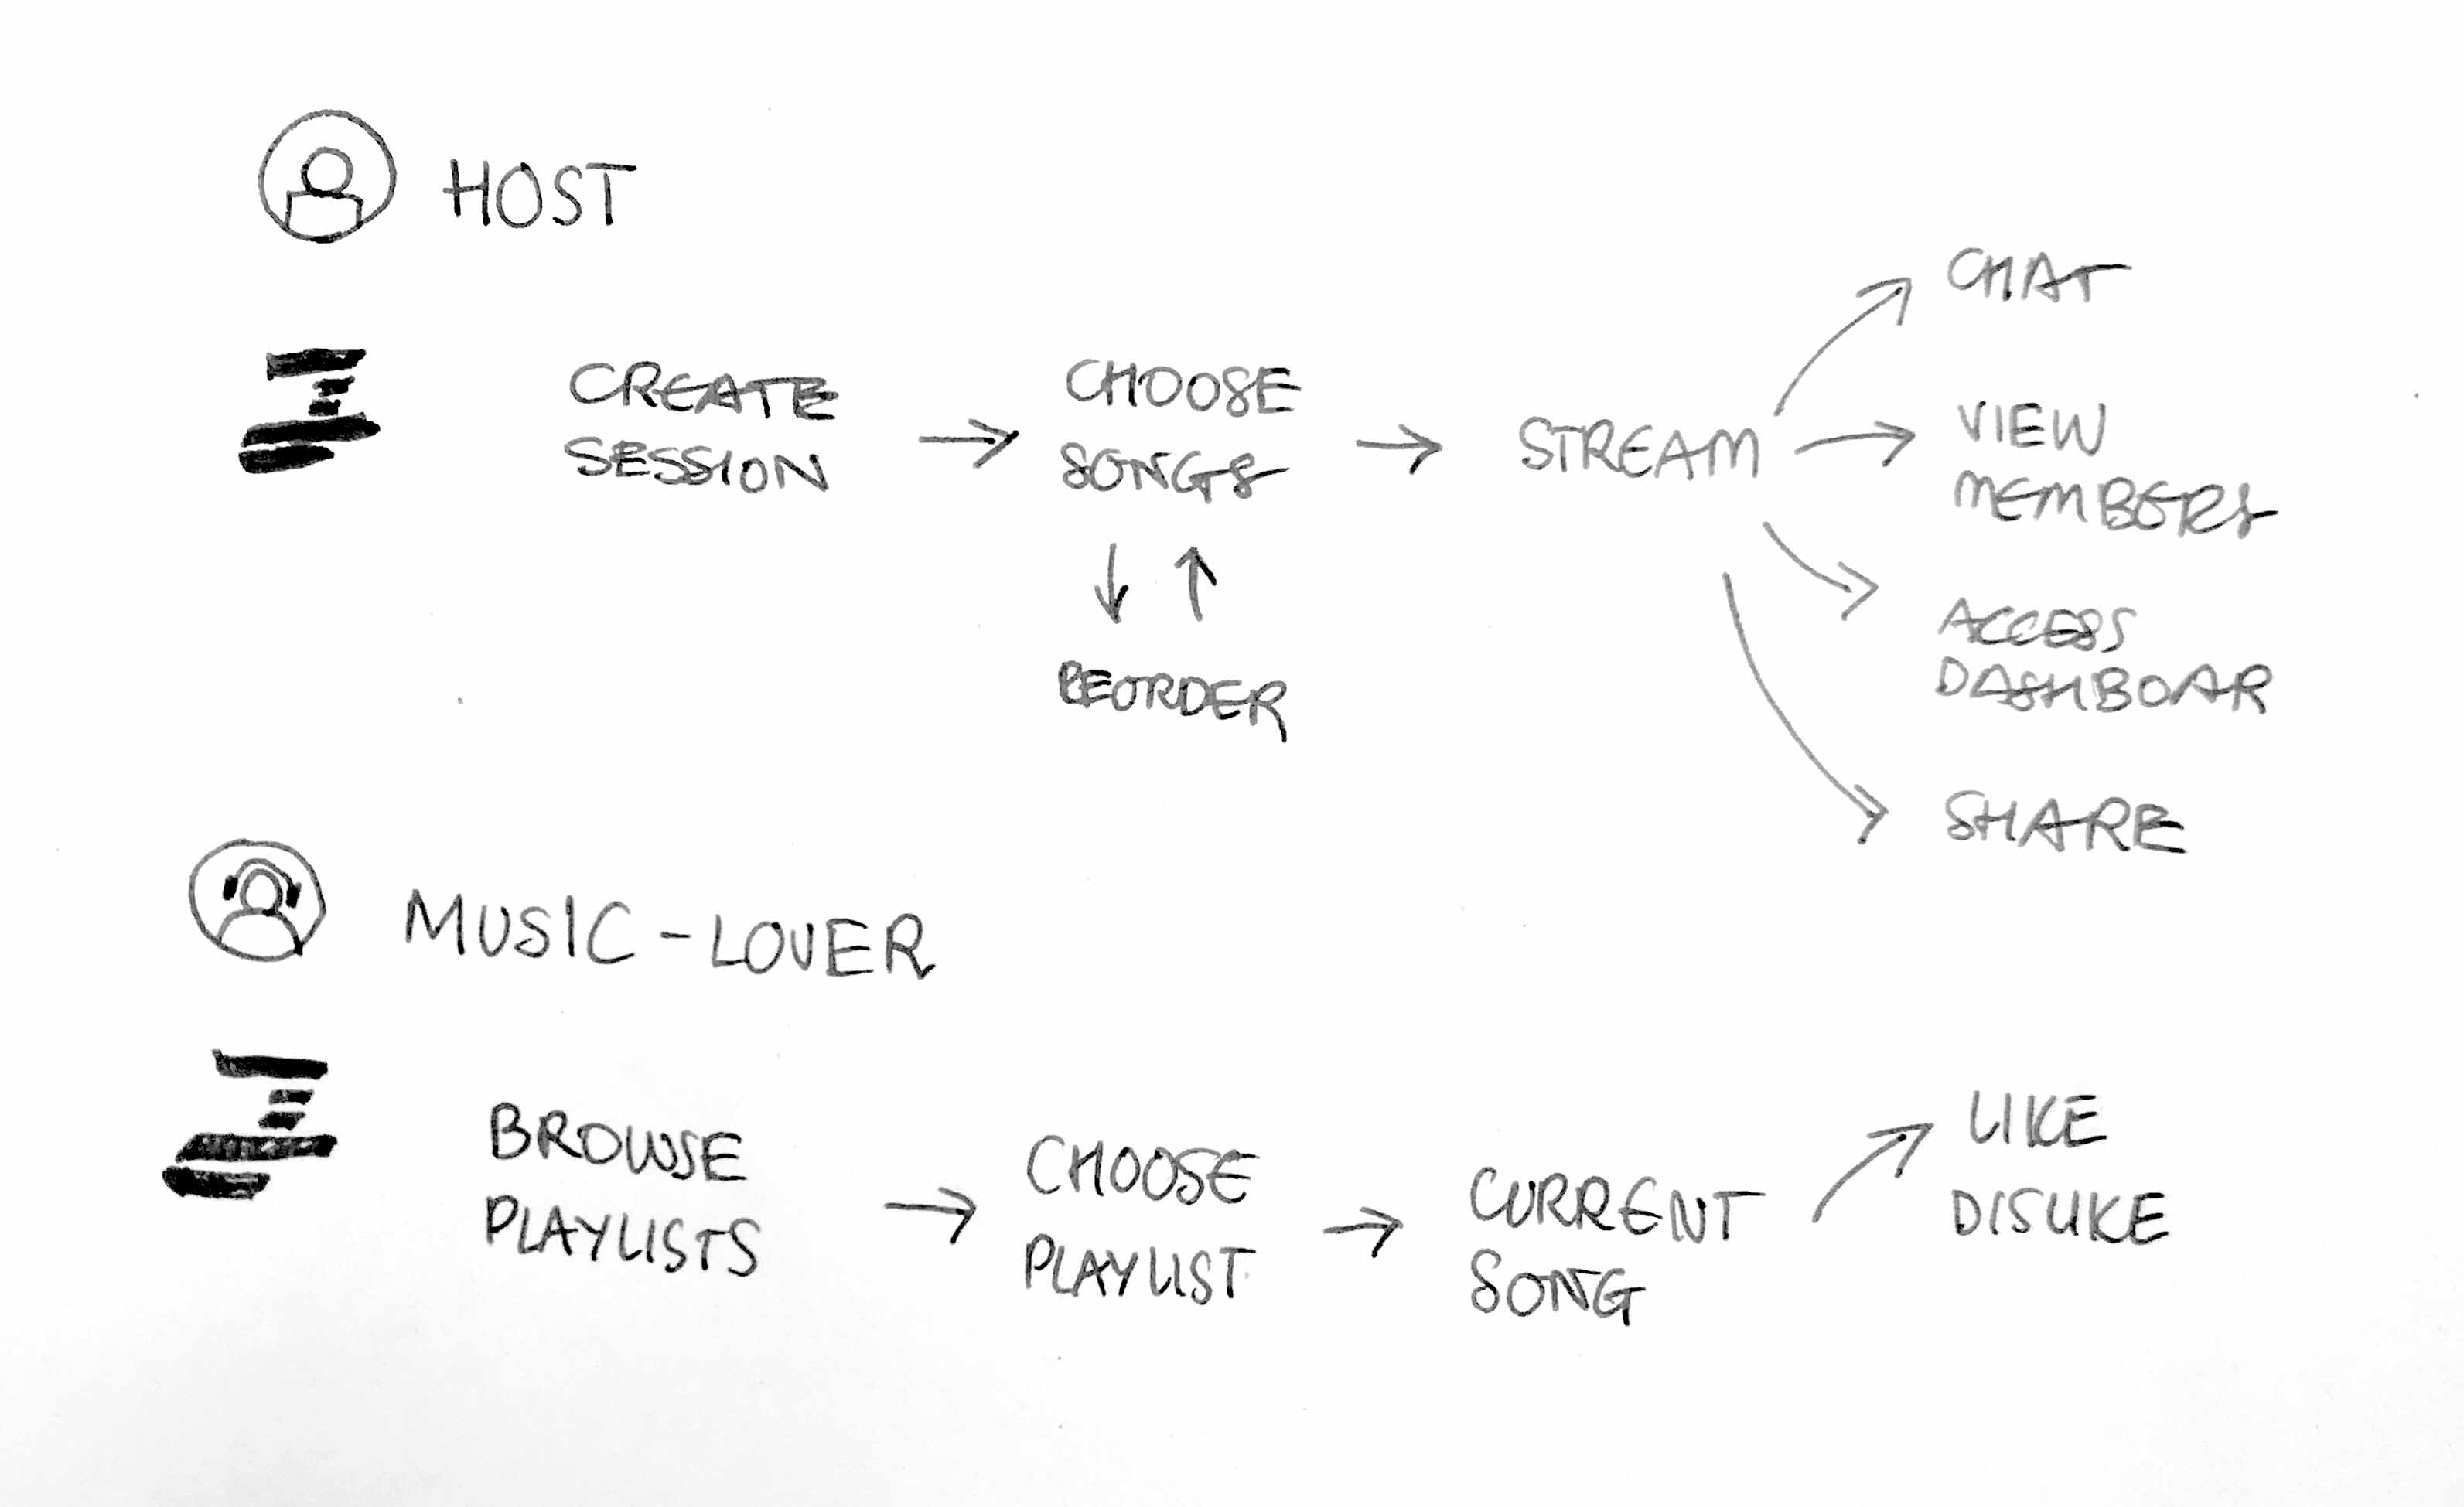 HOST
CREATE
SESSION
CHOOSE
SONGS
REORDER
STREAM
CHAT
VIEW
MEMBERS
ACCESS
DASHBOAR
SHARE
MUSIC-LOVER
BROWSE
PLAYLISTS
CHOOSE
PLAYLIST
CURRENT
SONG
LIKE
DISLIKE